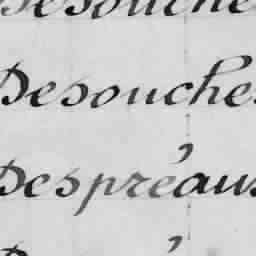 Desouche
Desouches
Despréaux